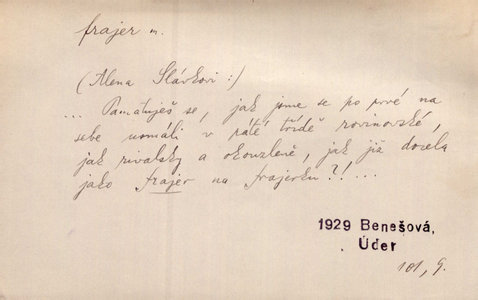 frajer m.
(Alena Slávkovi:)
... Pamatuješ se, jak jsme se po prvé na
sebe usmáli v páté třídě rovinovské,
jak rivalsky a okouzleně, jak již docela
jako frajer na frajerku?!...
1929 Benešová,
Úder
101, 9.